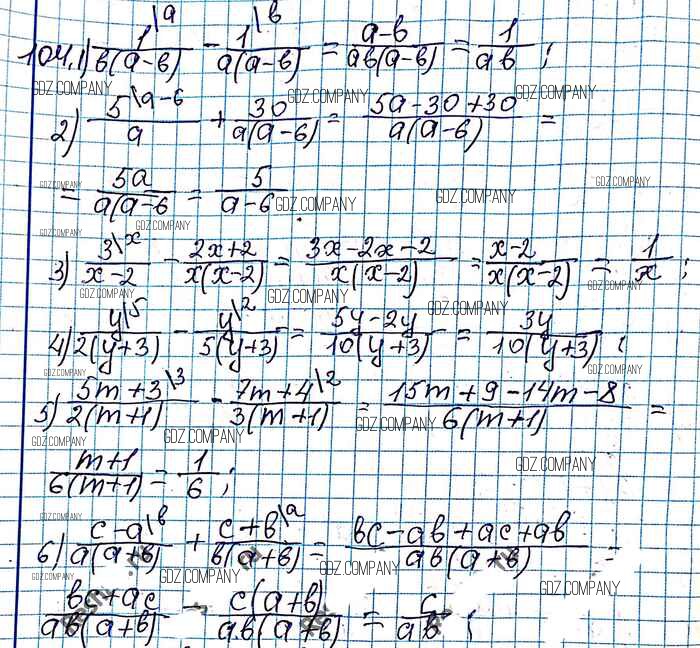 104.1) 1\a / b(a-b) - 1\b / a(a-b) = a-b / ab(a-b) = 1 / ab ;
GDZ.COMPANY GDZ.COMPANY GDZ.COMPANY
2) 5\a-6 / a + 30 / a(a-6) = 5a-30+30 / a(a-6) =
GDZ.COMPANY GDZ.COMPANY GDZ.COMPANY
= 5a / a(a-6 = 5 / a-6 .
GDZ.COMPANY GDZ.COMPANY
3) 3\x / x-2 - 2x+2 / x(x-2) = 3x-2x-2 / x(x-2) = x-2 / x(x-2) = 1 / x ;
GDZ.COMPANY GDZ.COMPANY GDZ.COMPANY GDZ.COMPANY
4) y\5 / 2(y+3) - y\2 / 5(y+3) = 5y-2y / 10(y+3) = 3y / 10(y+3) ;
GDZ.COMPANY GDZ.COMPANY
5) 5m+3\3 / 2(m+1) - 7m+4\2 / 3(m+1) = 15m+9-14m-8 / 6(m+1) =
GDZ.COMPANY GDZ.COMPANY GDZ.COMPANY
m+1 / 6(m+1) = 1 / 6 ;
GDZ.COMPANY
GDZ.COMPANY
6) c-a\b / a(a+b) + c+b\a / b(a+b) = bc-ab+ac+ab / ab(a+b) =
GDZ.COMPANY GDZ.COMPANY GDZ.COMPANY GDZ.COMPANY
bc+ac / ab(a+b) = c(a+b) / ab(a+b) = c / ab ;